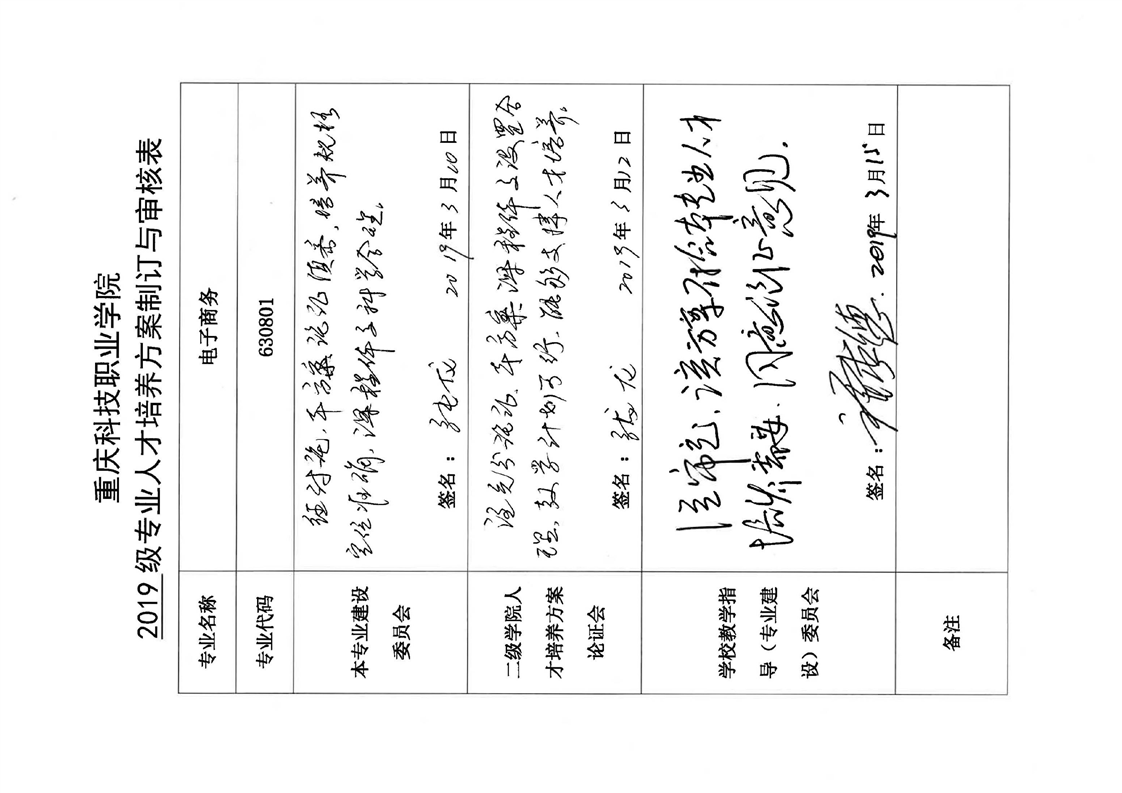 重庆科技职业学院
2019 级专业人才培养方案制订与审核表
专业名称
电子商务
专业代码
630801
本专业建设
委员会
经讨论,本方案论证填否,培养规格
定位准确,课程体系科学合理。
签名:
2019年3月10日
二级学院人
才培养方案
论证会
经充分论证,本方案课程体系设置合
理,教学计划可行,能够支撑人才培养。
签名:张龙
2019年3月12日
学校教学指
导(专业建
设)委员会
经审定,该方案符合本专业人才
培养要求,同意论证意见.
签名:
2019年3月15日
备注